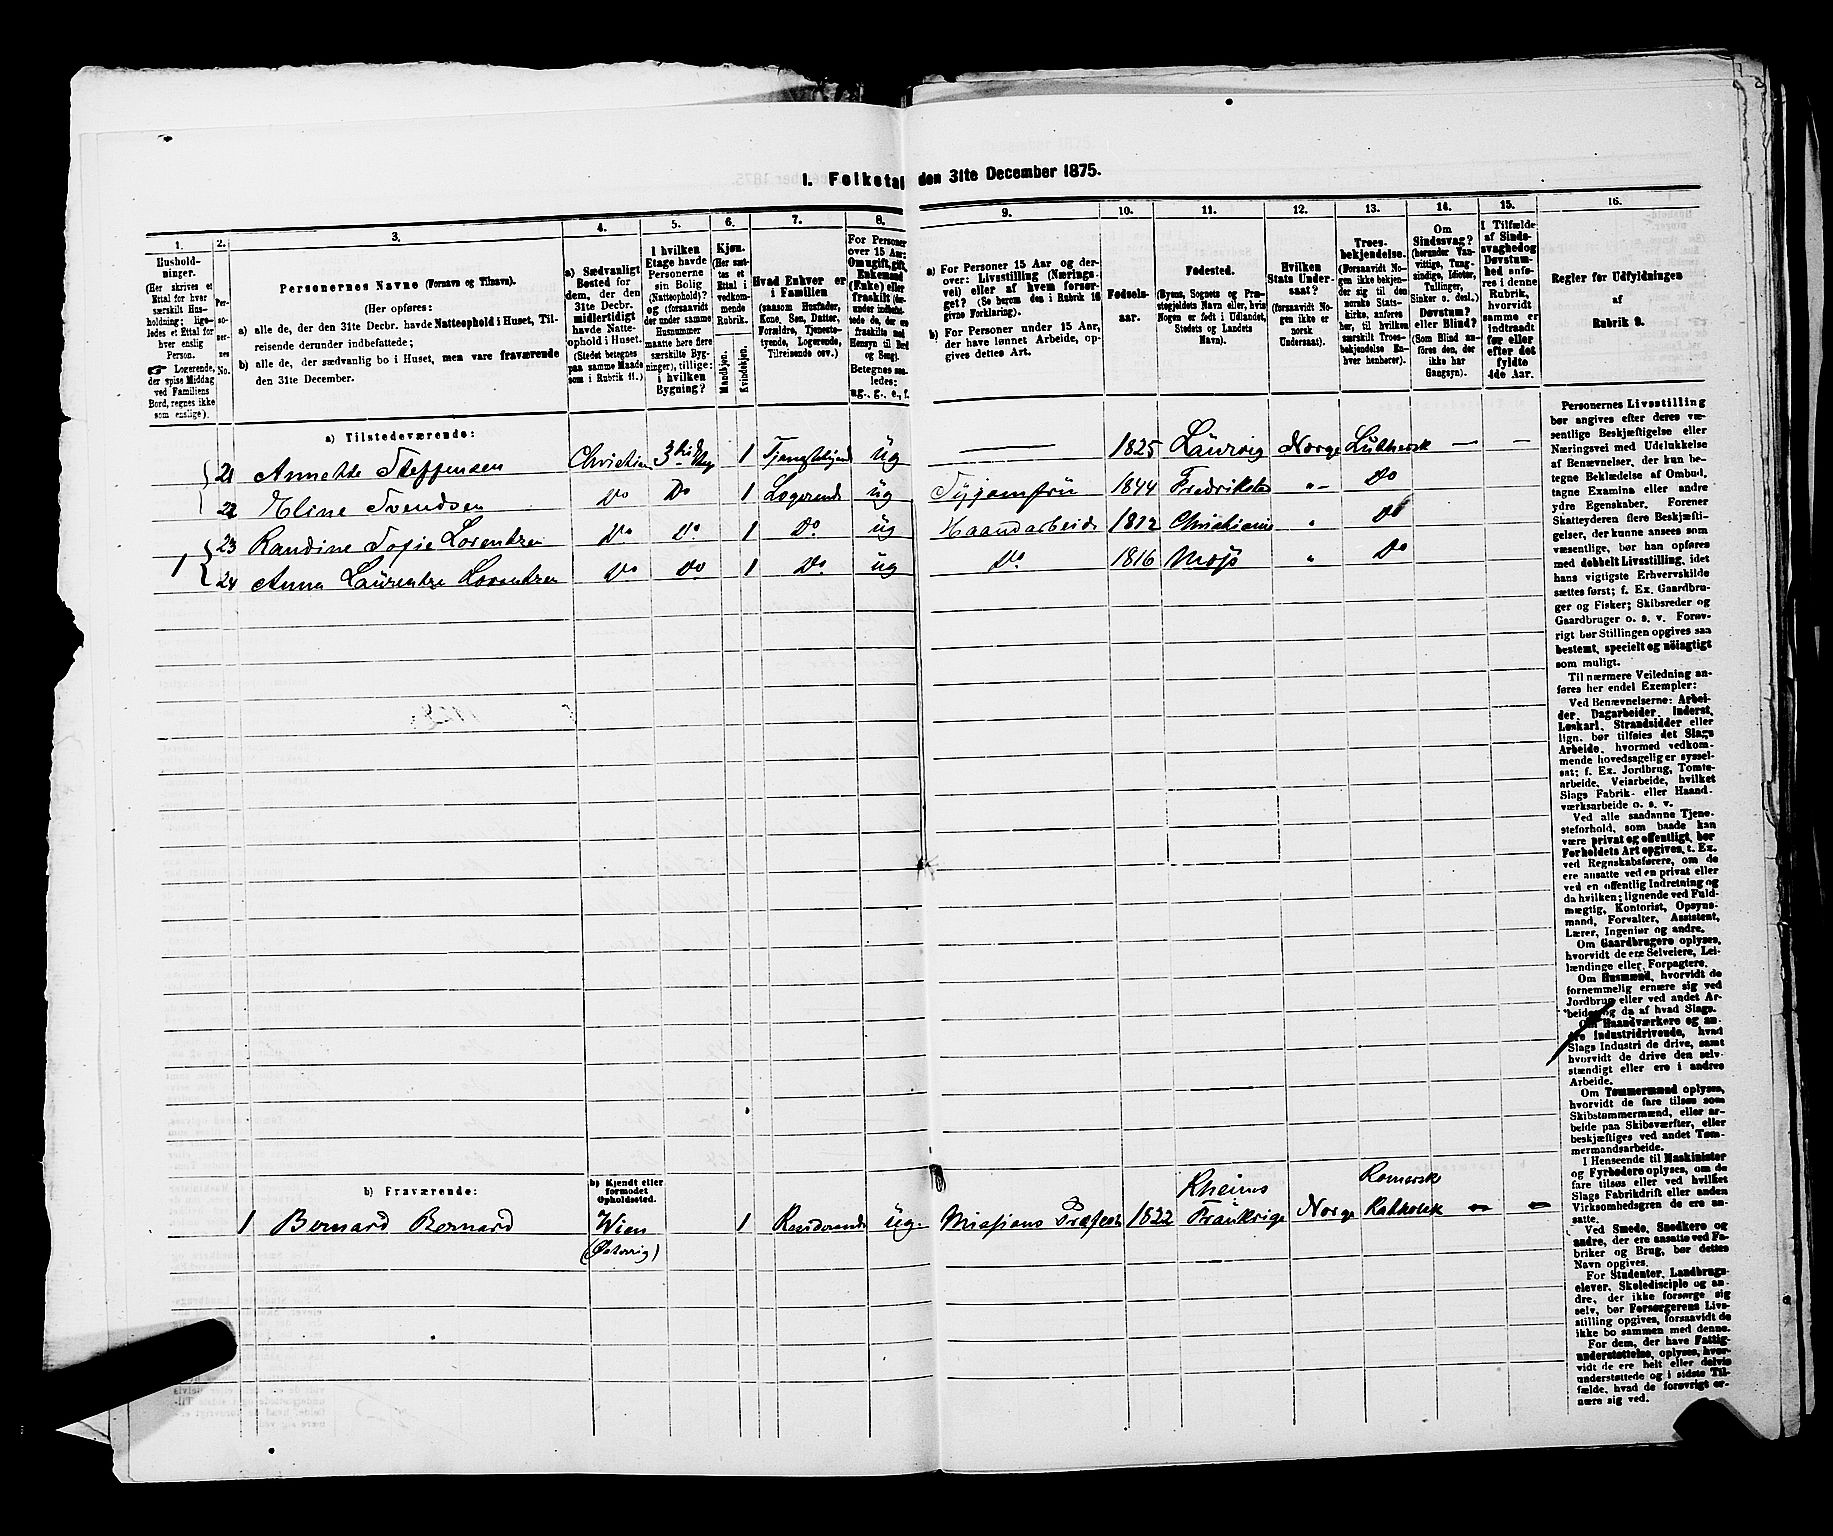 1. Folketal den 31te December 1875.
1. 2. 3. 4. 5. 6. 7. 8. 9. 10. 11. 12. 13. 14. 15. 16.
Hushold-
ninger.
(Her skrives et
Ettal for hver
særskilt Hus-
holdning; lige-
ledes et Ettal for
hver enslig
Person.
Logerende,
der spise Middag
ved Familiens
Bord, regnes ikke
som enslige).
Per-
so-
ner-
nes
No.
Personernes Navne (Fornavn og Tilnavn).
(Her opføres:
a) alle de, der den 31te Decbr. havde Natteophold i Huset, Til-
reisende derunder indbefattede;
b) alle de, der sædvanlig bo i Huset, men vare fraværende
den 31te December.
a) Sædvanligt
Bosted for
dem, der den
31te Decbr.
midlertidigt
havde Natte-
ophold i Huset.
(Stedet betegnes
paa samme Maade
som i Rubrik 11.)
I hvilken
Etage havde
Personerne
sin Bolig
(Natteophold)?
og (forsaavidt
der under samme
Husnummer
maatte høre flere
særskilte Byg-
ninger), tillige:
i hvilken
Bygning?
Kjøn.
(Her sæt-
tes et
Ettal i
vedkom-
mende
Rubrik.
Mandkjøn.
Kvindekjøn.
Hvad Enhver er
i Familien
(saasom Husfader,
Kone, Søn, Datter,
Forældre, Tjeneste-
tyende, Logerende,
Tilreisende osv.)
For Personer
over 15 Aar:
Om ugift, gift,
Enkemand
(Enke) eller
fraskilt
Hensyn til Bord
og Seng).
Betegnes saa-
ledes:
ug., g., e., f.
a) For Personer 15 Aar og der-
over: Livsstilling (Nærings-
vei) eller af hvem forsør-
get? (Se herom den i Rubrik 16
givne Forklaring).
b) For Personer under 15 Aar,
der have lønnet Arbeide, op-
gives dettes Art.
Fødsels-
aar.
Fødested.
(Byens, Sognets og Præ-
stegjeldets Navn eller, hvis
Nogen er født i Udlandet,
Stedets og Landets
Navn).
Hvilken
Stats Under-
saat?
(forsaavidt No-
gen ikke er
norsk
Undersaat).
Troes-
bekjendelse.
(Forsaavidt No-
gen ikke bekjen-
der sig til den
norske Stats-
kirke, anføres
her, til hvilken
særskilt Troes-
bekjendelse En-
hver henhører).
Om
Sindssvag?
(herunder Van-
vittige, Tung-
sindige, Idioter,
Tullinger,
Sinker o. desl.)
Døvstum?
eller Blind?
(Som Blind an-
føres den, der
ikke har
Gangsyn).
I Tilfælde
af Sinds-
svaghed og
Døvstum-
hed anfø-
res i denne
Rubrik,
hvorvidt
samme er
indtraadt
før eller
efter det
fyldte
4de Aar.
Regler for Udfyldningen
af
Rubrik 9.
a) Tilstedeværende:
21 Annette Steffensen Christian 3die Etag 1 Tjenestetyende ug — 1825 Laurvig Norge Luthersk — —
22 Eline Svendsen Do Do 1 Logerende ug Syjomfru 1844 Fredrikstad " Do
23 Randine Sofie Lorentzen Do Do 1 Do ug Haandarbeide 1812 Christiania " Do
1 24 Anna Laurentze Lorentzen Do Do 1 Do ug Do 1816 Moss " Do
b) Fraværende:
b) Kjendt eller
formodet
Opholdssted.
1 Bernard Bernard Wien 1 ug. Missions Præfect 1822 Rheims Frankrige Norge Romersk Katholsk — —
(Østerrig)
Personernes Livsstilling
bør angives efter deres væ-
sentlige Beskjæftigelse eller
Næringsvei med Udelukkelse
af Benævnelser, der kun be-
tegne Beklædelse af Ombud,
tagne Examina eller andre
ydre Egenskaber. Forener
Skatteyderen flere Beskjæfti-
gelser, der kunne ansees som
væsentlige, bør han opføres
med dobbelt Livsstilling, idet
hans vigtigste Erhvervskilde
sættes først; f. Ex. Gaardbru-
ger og Fisker; Skibsreder og
Gaardbruger o. s. v. Forøv-
rigt bør Stillingen opgives saa
bestemt, specielt og nøiagtigt
som muligt.
Til nærmere Veiledning an-
føres her endel Exempler:
Ved Benævnelserne: Arbei-
der, Dagarbeider, Inderst,
Løskarl, Strandsidder eller
lign. bør tilføies det Slags
Arbeide, hvormed vedkom-
mende hovedsagelig er syssel-
sat; f. Ex. Jordbrug, Tomte-
arbeide, Veiarbeide, hvilket
Slags Fabrik- eller Haand-
værksarbeide o. s. v.
Ved alle saadanne Tjene-
steforhold, som baade kan
være privat og offentligt, bør
Forholdets Art opgives, t. Ex.
ved Regnskabsførere, om de
ere ansatte ved en privat eller
ved en offentlig Indretning og
da hvilken; lignende ved Fuld-
mægtig, Kontorist, Opsyns-
mand, Forvalter, Assistent,
Lærer, Ingeniør og andre.
Om Gaardbrugere oplyses,
hvorvidt de ere Selveiere, Lei-
lændinge eller Forpagtere.
Om Husmænd, hvorvidt de
fornemmelig ernære sig ved
Jordbrug eller ved andet Ar-
beide, og da af hvad Slags.
Om Haandværkere og an-
dre Industridrivende, hvad
Slags Industri de drive, samt
hvorvidt de drive den selv-
stændigt eller ere i andres
Arbeide.
Om Tømmermænd oplyses,
hvorvidt de fare tilsøs som
Skibstømmermænd, eller ar-
beide paa Skibsværfter, eller
beskjæftiges ved andet Tøm-
mermandsarbeide.
I Henseende til Maskinister
og Fyrbødere oplyses, om de
fare tilsøs eller ved hvilket
Slags Fabrikdrift eller anden
Virksomhedsgren de ere an-
satte.
Ved Smede, Snedkere og
andre, der ere ansatte ved Fa-
briker og Brug, bør dettes
Navn opgives.
For Studenter, Landbrugs-
elever, Skoledisciple og an-
dre, der ikke forsørge sig
selv, bør Forsørgerens Livs-
stilling opgives, forsaavidt de
ikke bo sammen med denne.
For dem, der have Fattig-
understøttelse, oplyses, hvor-
vidt de ere helt eller delvis
understøttede og i sidste Til-
fælde, hvad de forøvrigt er-
nære sig ved.